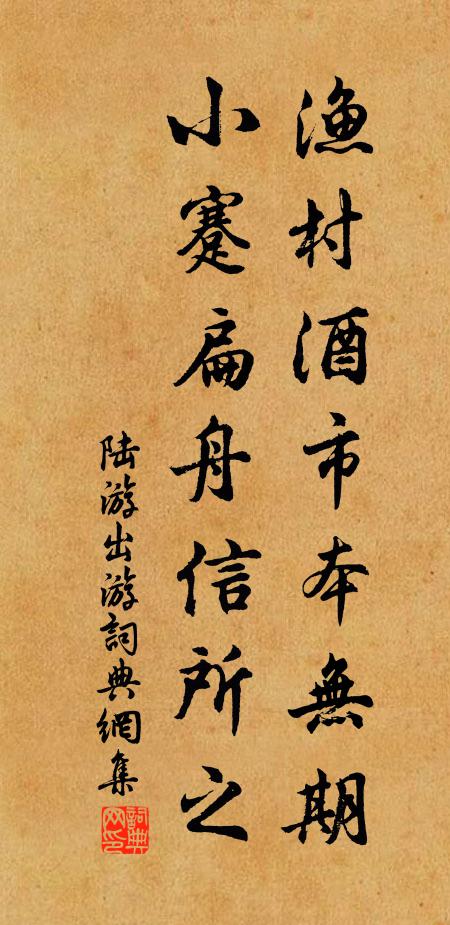 渔村酒市本無期
小蹇扁舟信所之
陆游出游詞典網集
詞典网印